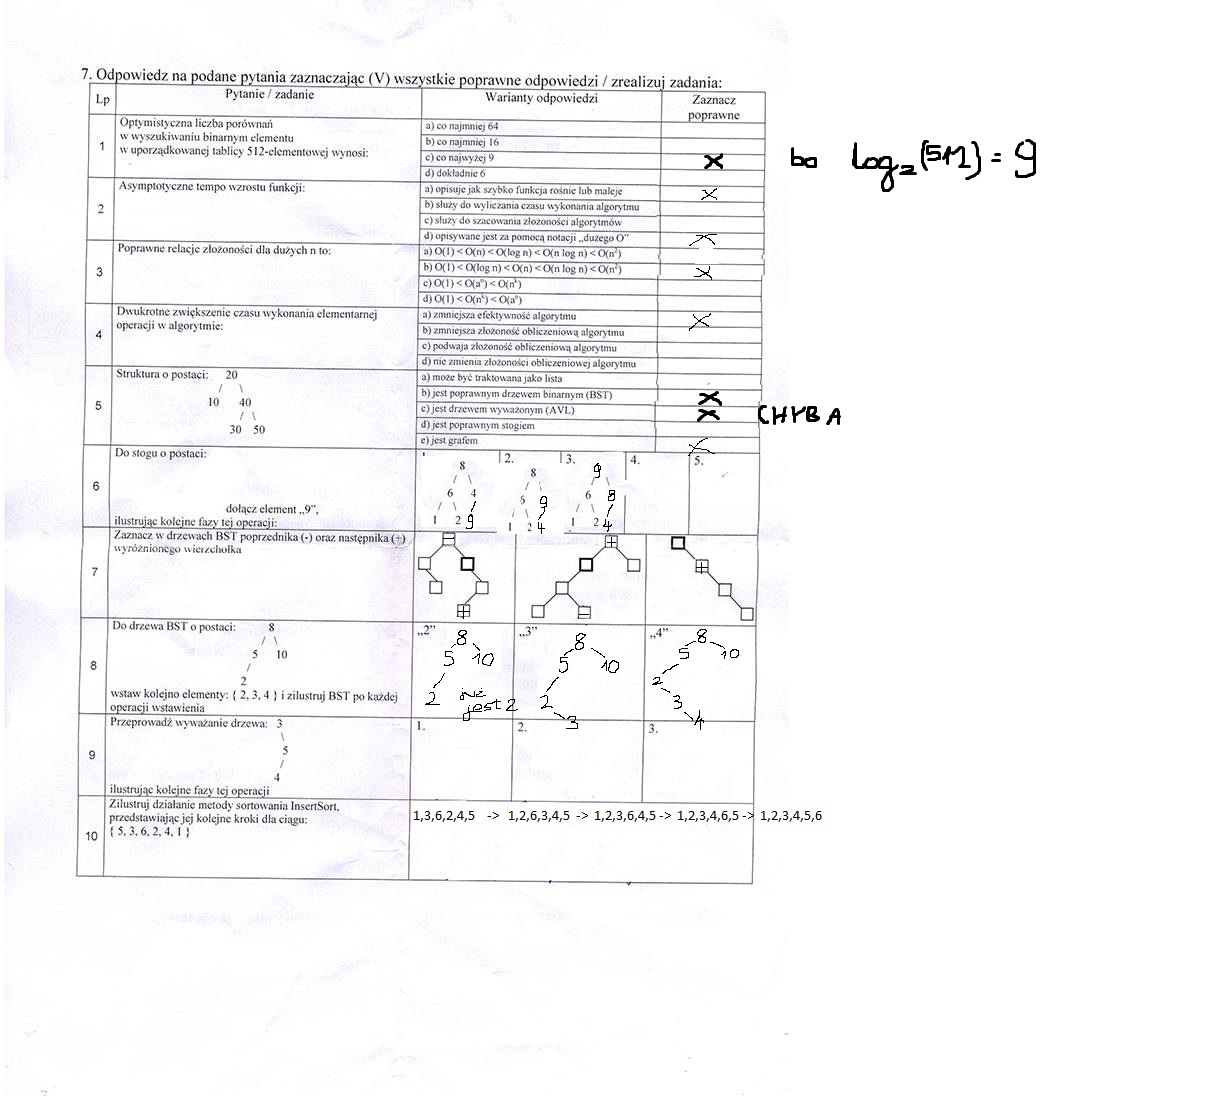 7. Odpowiedz na podane pytania zaznaczając (V) wszystkie poprawne odpowiedzi / zrealizuj zadania:
Lp
Pytanie / zadanie
Warianty odpowiedzi
Zaznacz
poprawne
1
Optymistyczna liczba porównań
w wyszukiwaniu binarnym elementu
w uporządkowanej tablicy 512-elementowej wynosi:
a) co najmniej 64
b) co najmniej 16
c) co najwyżej 9
d) dokładnie 6
bo log₂(512) = 9
2
Asymptotyczne tempo wzrostu funkcji:
a) opisuje jak szybko funkcja rośnie lub maleje
b) służy do wyliczania czasu wykonania algorytmu
c) służy do szacowania złożoności algorytmów
d) opisywane jest za pomocą notacji „dużego O"
3
Poprawne relacje złożoności dla dużych n to:
a) O(1) < O(n) < O(log n) < O(n log n) < O(n²)
b) O(1) < O(log n) < O(n) < O(n log n) < O(n²)
c) O(1) < O(aⁿ) < O(nᵏ)
d) O(1) < O(nᵏ) < O(aⁿ)
4
Dwukrotne zwiększenie czasu wykonania elementarnej
operacji w algorytmie:
a) zmniejsza efektywność algorytmu
b) zmniejsza złożoność obliczeniową algorytmu
c) podwaja złożoność obliczeniową algorytmu
d) nie zmienia złożoności obliczeniowej algorytmu
5
Struktura o postaci: 20
10 40
30 50
a) może być traktowana jako lista
b) jest poprawnym drzewem binarnym (BST)
c) jest drzewem wyważonym (AVL)
d) jest poprawnym stogiem
e) jest grafem
CHYBA
6
Do stogu o postaci:
dołącz element „9",
ilustrując kolejne fazy tej operacji:
8
6 4
1 2 9
2.
8
6 9
1 2 4
3.
9
6 8
1 2 4
4.
5.
7
Zaznacz w drzewach BST poprzednika (-) oraz następnika (+)
wyróżnionego wierzchołka
8
Do drzewa BST o postaci: 8
5 10
2
wstaw kolejno elementy: { 2, 3, 4 } i zilustruj BST po każdej
operacji wstawienia
„2"
8
5 10
2
już
jest 2
„3"
8
5 10
2
3
„4"
8
5 10
2
3
4
9
Przeprowadź wyważanie drzewa: 3
5
4
ilustrując kolejne fazy tej operacji
1.
2.
3.
10
Zilustruj działanie metody sortowania InsertSort,
przedstawiając jej kolejne kroki dla ciągu:
{ 5, 3, 6, 2, 4, 1 }
1,3,6,2,4,5 -> 1,2,6,3,4,5 -> 1,2,3,6,4,5 -> 1,2,3,4,6,5 -> 1,2,3,4,5,6